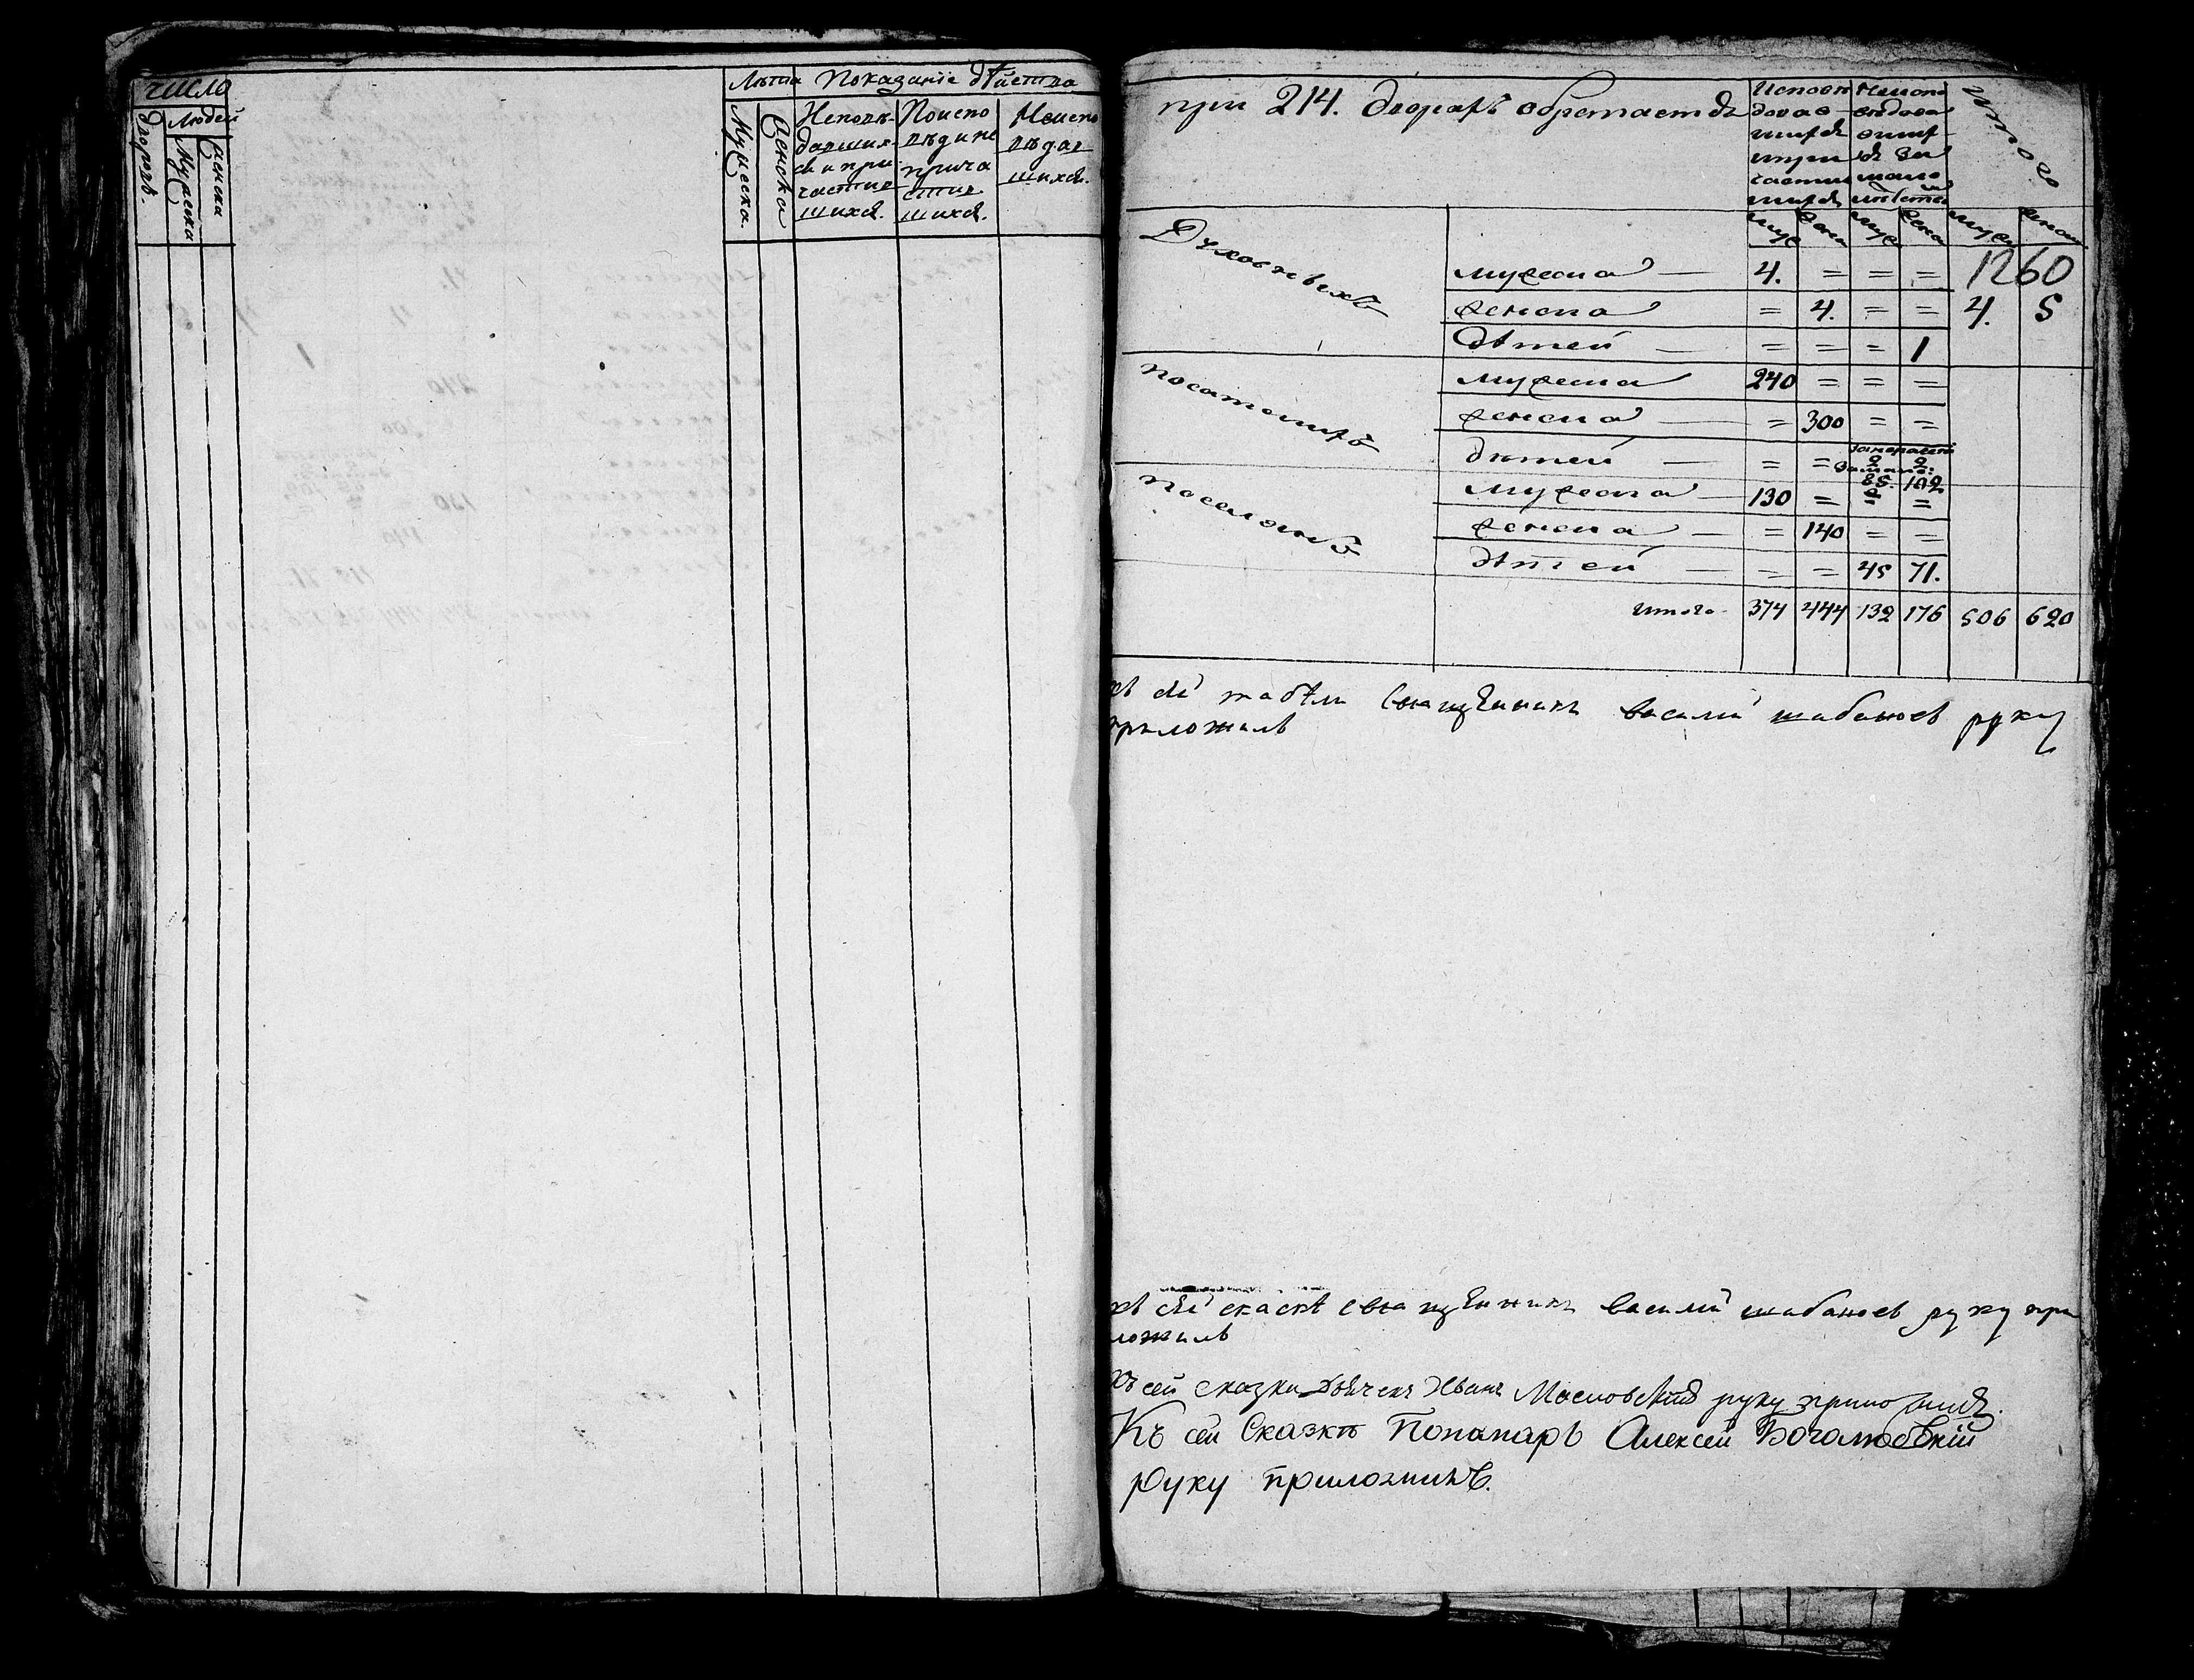 число
Людей
дворовъ.
Мужеска
женска
Лѣта Показанiе дѣйства
Мужеска.
Женска
Исповѣ-
давших-
ся и при-
частив-
шихся.
Поиспо
вѣд и не
прича
стив
шихся.
Неиспо
вѣдав
шихся.
при 214. дворахъ обретается
Исповѣ
довав-
шихся
ипри
части
шихся
Неиспо
ведова
вших-
ся за
мало
лѣтст
Итого
муж жен муж жен муж женс
Духовныхъ
мужеска — 4. = = = 1260
женска = 4. = = 4. 5
дѣтей — = = = 1
посатскихъ
мужеска 240 = = =
женска — = 300 = =
дѣтей — = = 2 2
85. 102
поселянъ
мужеска — 130 = = =
женска — = 140 = =
дѣтей — = = 45 71.
итого 374 444 132 176 506 620
къ сей табѣли священникъ василий шабановъ руку
приложилъ
къ сей скаскѣ священникъ василий шабановъ руку при
ложилъ
Къ сей сказки дьячекъ Иванъ Масловскiй руку приложилъ.
Къ сей Сказкѣ Понамарь Алексей Боголюбскiй
руку приложилъ.